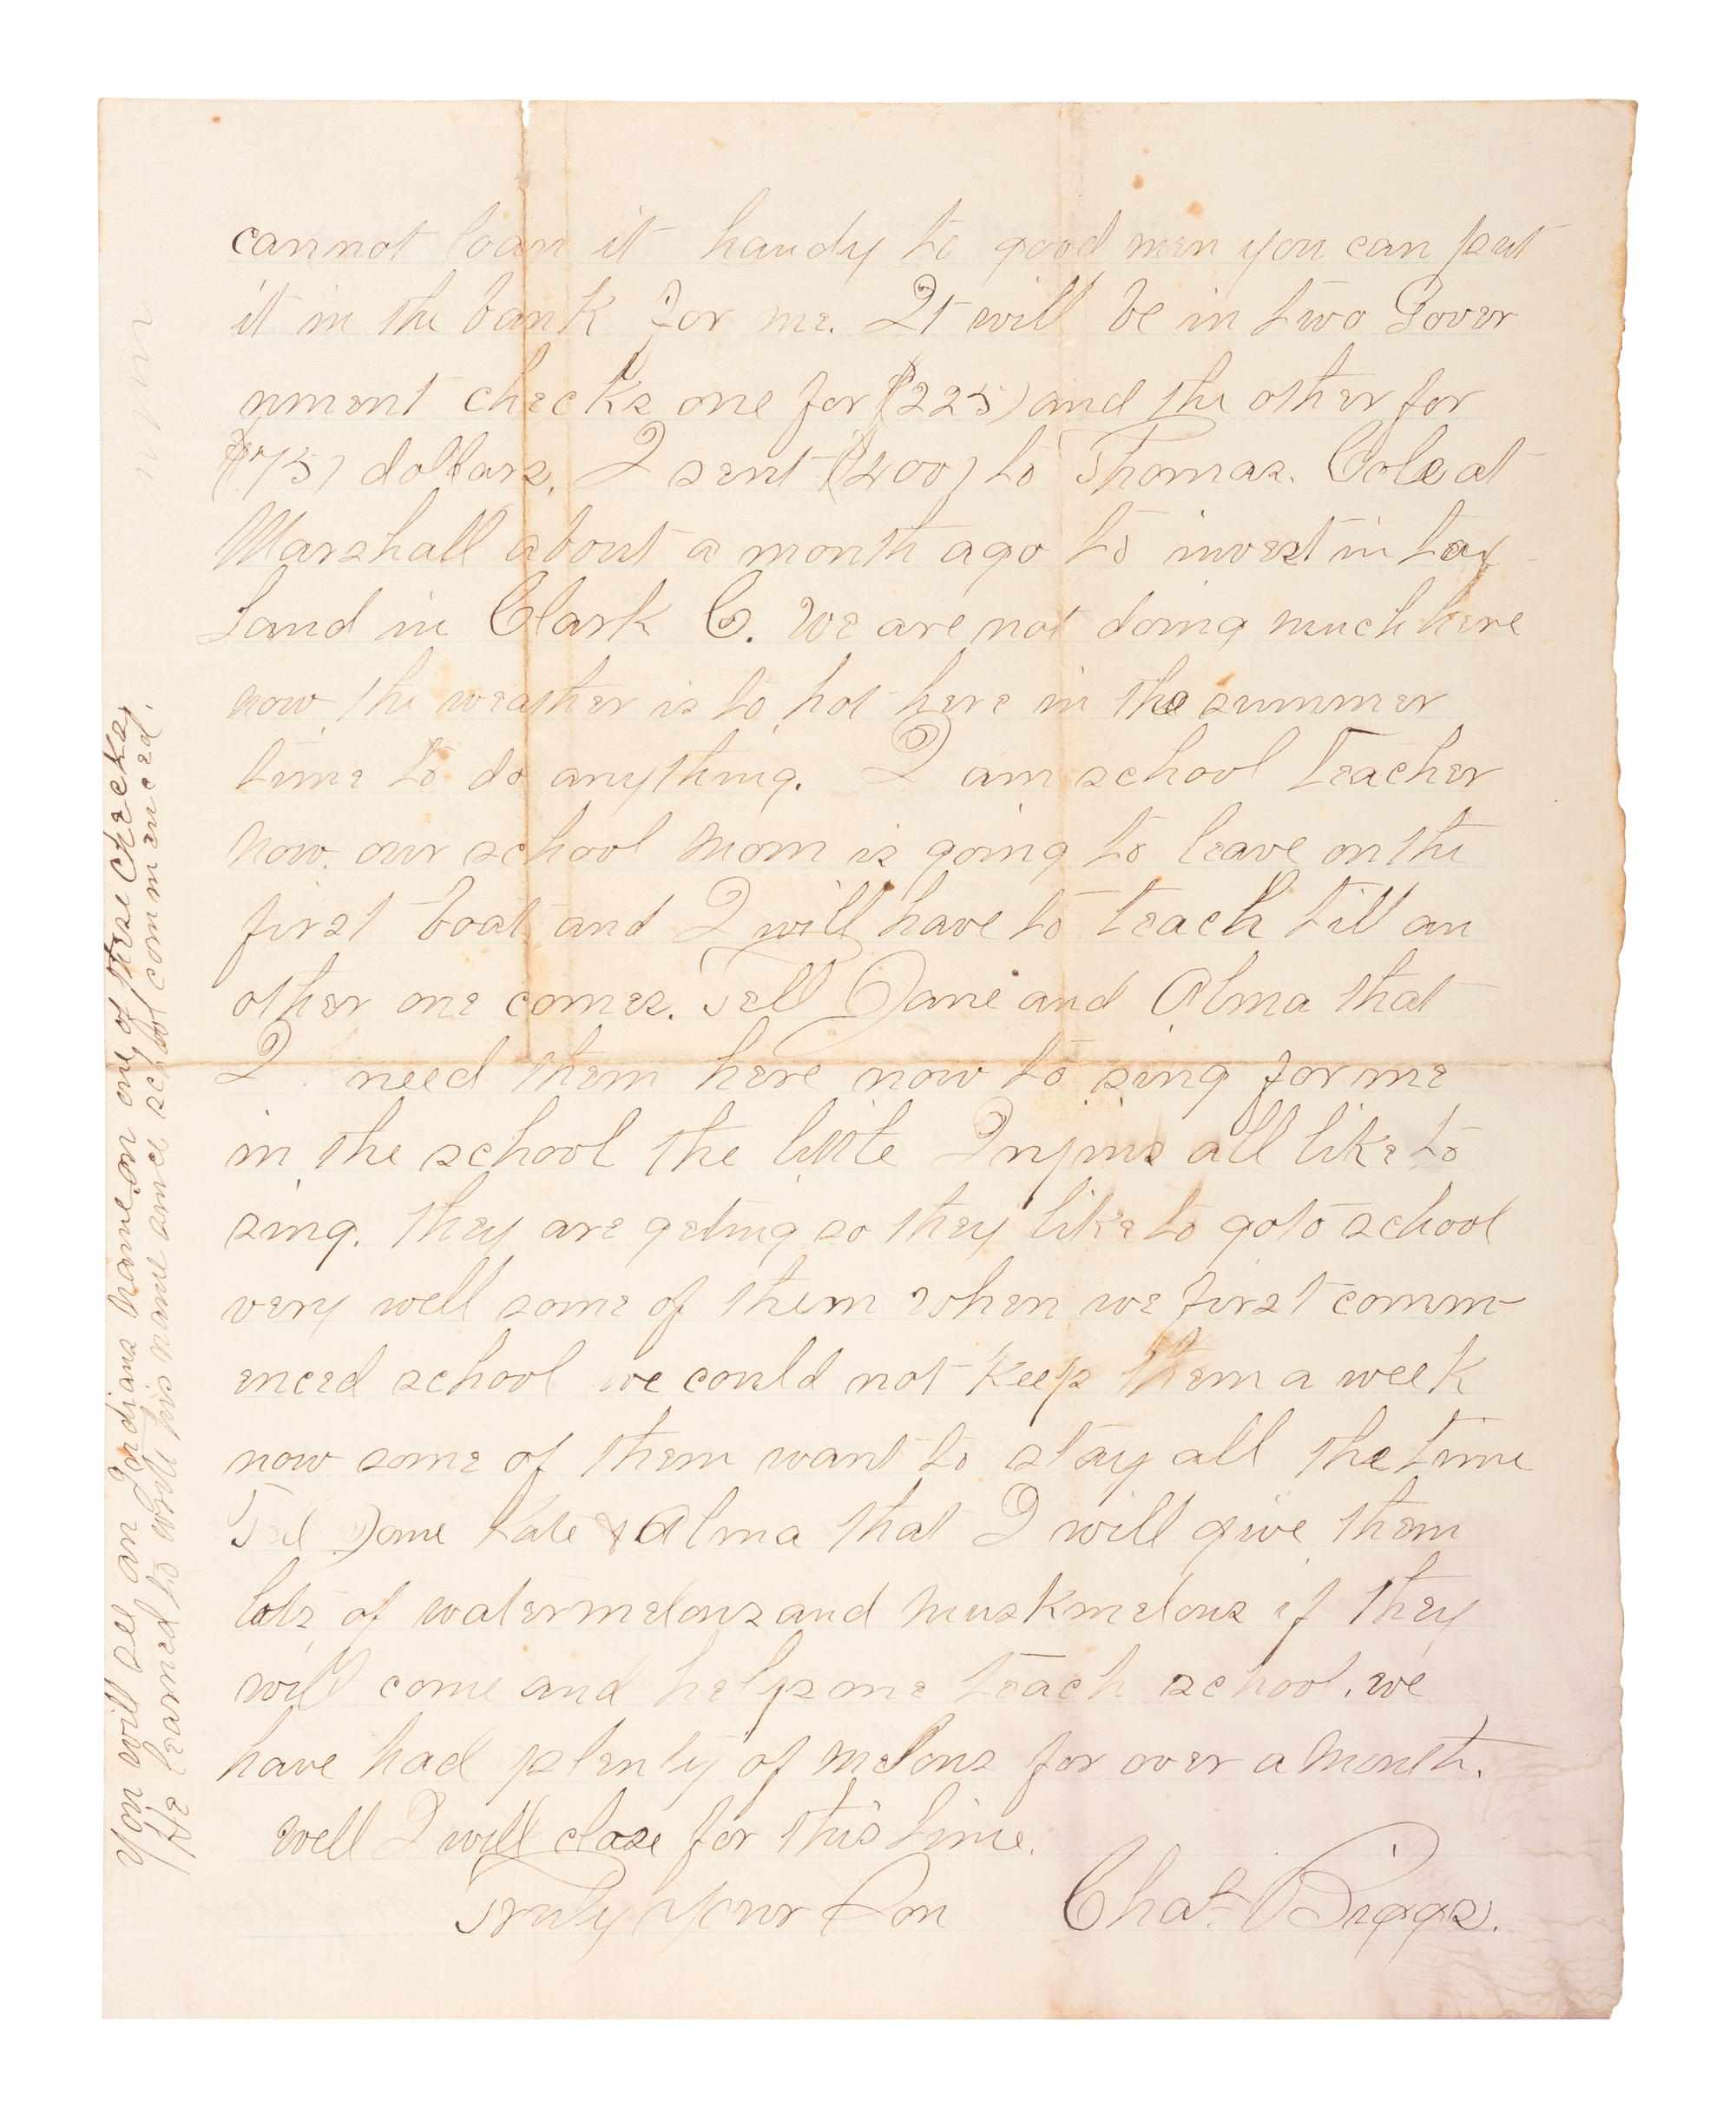 cannot loan it handy to good men you can put
it in the bank for me. It will be in two Gover
nment checks one for ($225) and the other for
($75) dollars, I sent ($400) to Thomas. Cole at
Marshall about a month ago to invest in tax
Land in Clark Co. We are not doing much here
now the weather is to hot here in the summer
time to do anything. I am school teacher
now. our school mom is going to leave on the
first boat and I will have to teach till an
other one comes. Tell Jane and Alma that
I need them here now to sing for me
in the school the little Injins all like to
sing. they are geting so they like to go to school
very well some of them when we first comm-
enced school we could not keep them a week
now some of them want to stay all the time
Tell Jane Kate & Alma that I will give them
lots of watermelons and muskmelons if they
will come and help me teach school. we
have had plenty of melons for over a month.
well I will close for this time.
Truly Your Son Chas. Biggs.
You will see an Indians name on one of these checks,
He learned to write his name since school commenced.